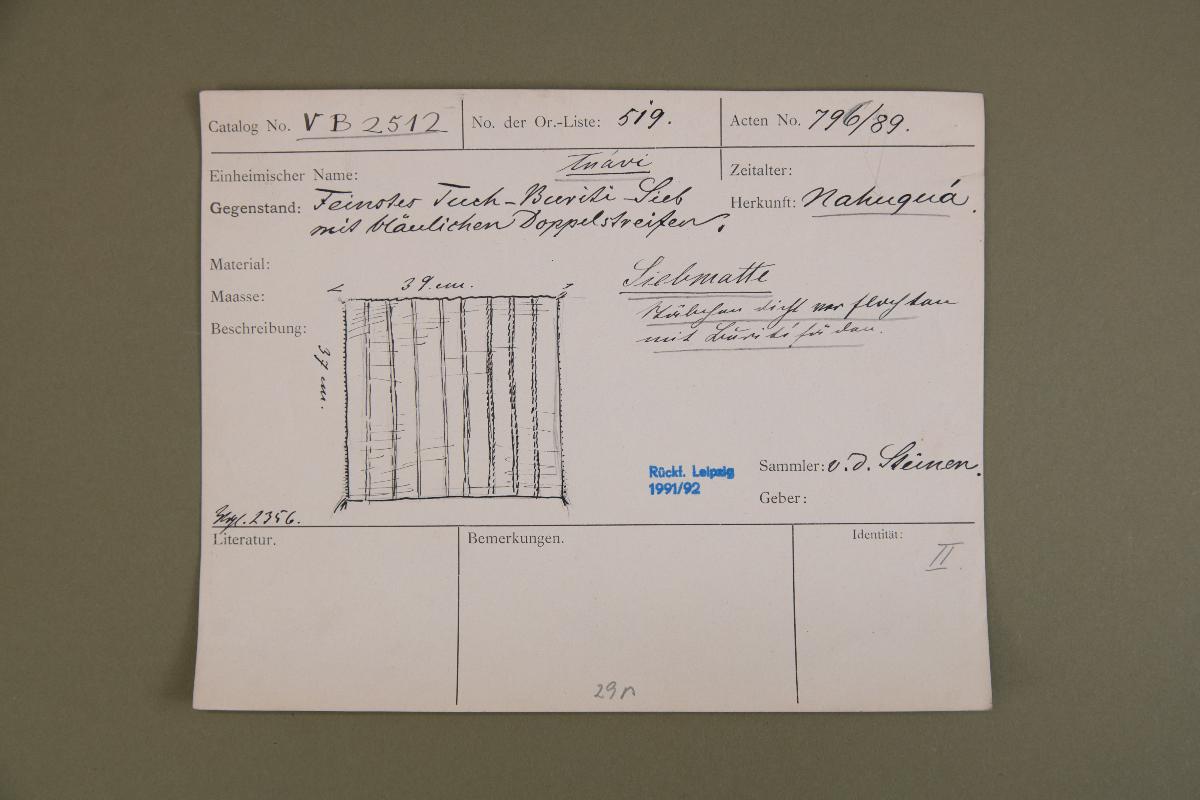 Catalog No. VB 2512
No. der Or.-Liste: 519.
Acten No. 796/89.
Einheimischer Name:
Zeitalter:
Gegenstand: Feinstes Tuch-Buriti-Sieb
mit bläulichen Doppelstreifen.
Herkunft: Nahuquá.
Material:
Maasse:
Beschreibung:
39 cm.
37 cm.
Siebmatte
Stäbchen dicht verflochten
mit Buritífäden.
Rückf. Leipzig
1991/92
Sammler: v. d. Steinen.
Geber:
2356.
Literatur.
Bemerkungen.
Identität:
II.